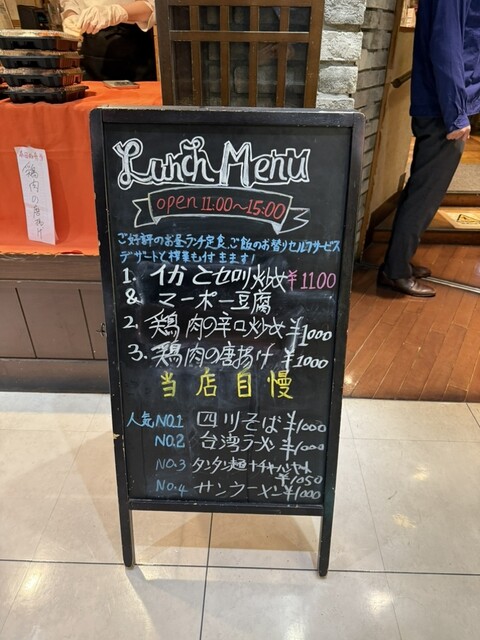 Lunch Menu
open 11:00~15:00
ご好評のお昼ランチ定食、ご飯のお替りセルフサービス
デザートと搾菜も付きます!
1. イカとセロリ炒め ¥1100
& マーボー豆腐
2. 鶏肉の辛口炒め ¥1000
3. 鶏肉の唐揚げ ¥1000
当店自慢
人気NO.1 四川そば ¥1000
NO.2 台湾ラーメン ¥1000
NO.3 タンタン麺+チャーハンセット
¥1050
NO.4 サンラーメン ¥1000
鶏肉の唐揚げ